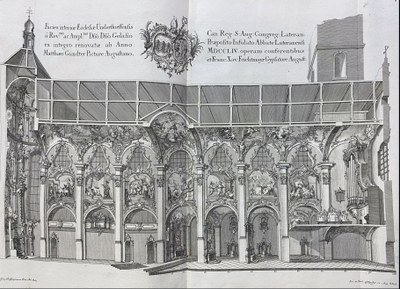 Facies internæ Ecclesiæ Undersdorffensis
à Rev.mo ac Ampl.mo D.no D.no Gelasio
ex integro renovatæ ab Anno
Matthæo Günther Pictore Augustano.
Can. Reg. S. Aug. Congreg. Lateran.
Præposito Infulato Abbate Lateranensi
MDCCLIV operam conferentibus
et Franc. Xav. Feichtmayr Gypsatore August.